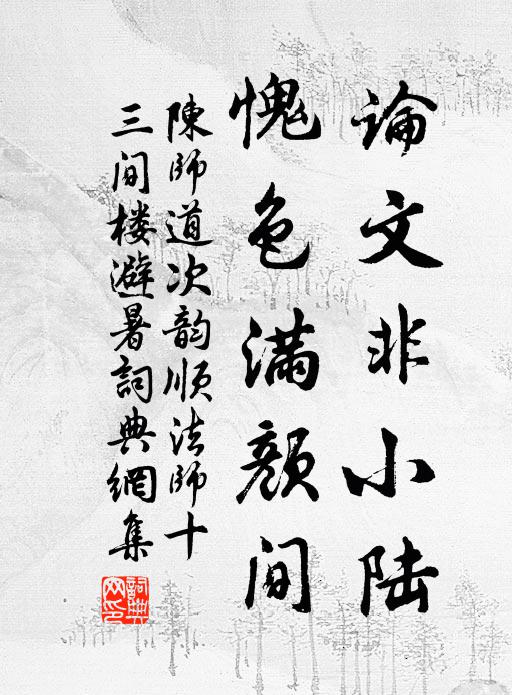 論文非小陆
愧色满颜间
陳師道次韵順法師十
三间楼避暑詞典網集
詞典网印